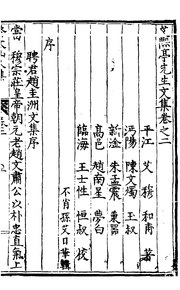 熙亭先生文集卷之二
平江 艾 穆 和甫 著
沔陽 陳文燭 玉叔
新淦 朱孟震 秉器
高邑 趙南星 夢白
臨海 王士性 恒叔 校
不肖孫艾日華輯
序
聘君趙圭洲文集序
當 穆宗莊皇帝朝元老趙文肅公以朴忠直氣上